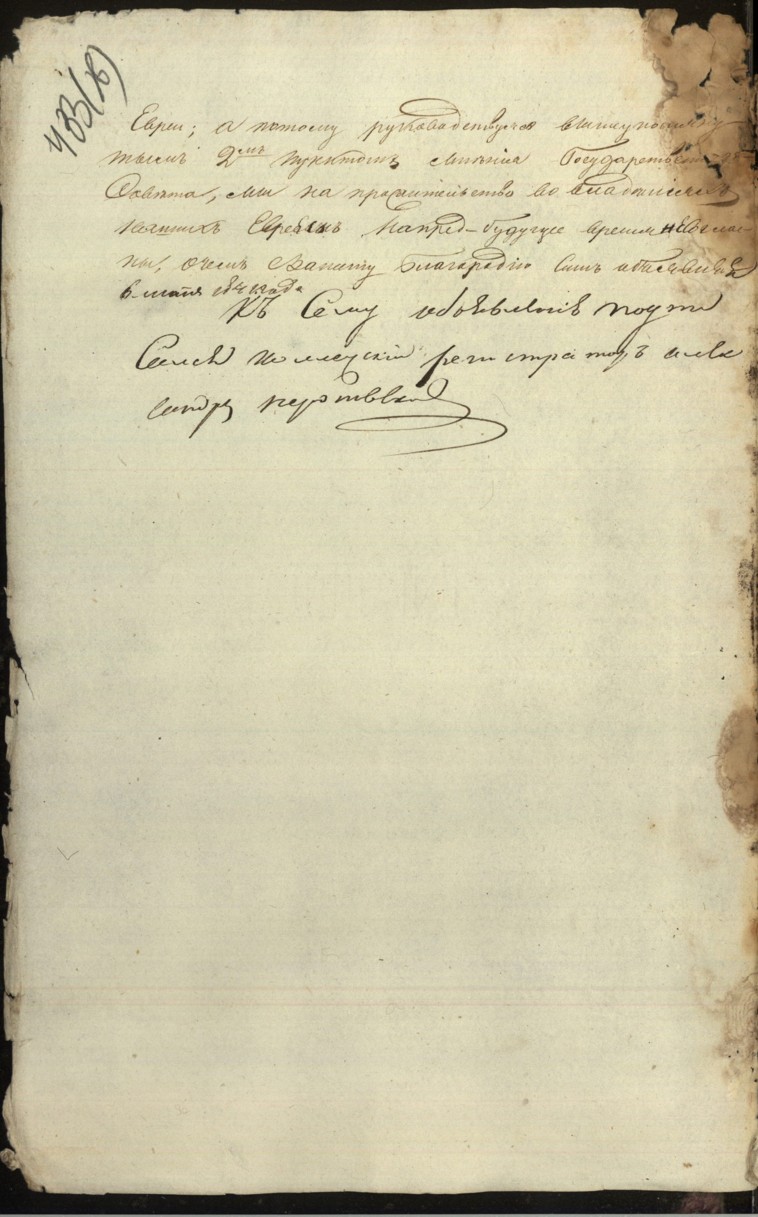 433(об)
Евреи; а потому руководствуясь вышеупомяну
тымъ 2мъ пунктомъ мнѣнія Государственнаго
Совѣта, мы на прожительство во владѣніяхъ
нашихъ Евреямъ напред-будущее время несоглас-
ны, очемъ Вашему Благородію симъ объясняемъ
6 маія года
Къ Сему объявленію подпи
Сался коллежскій регистраторъ алек
сандръ